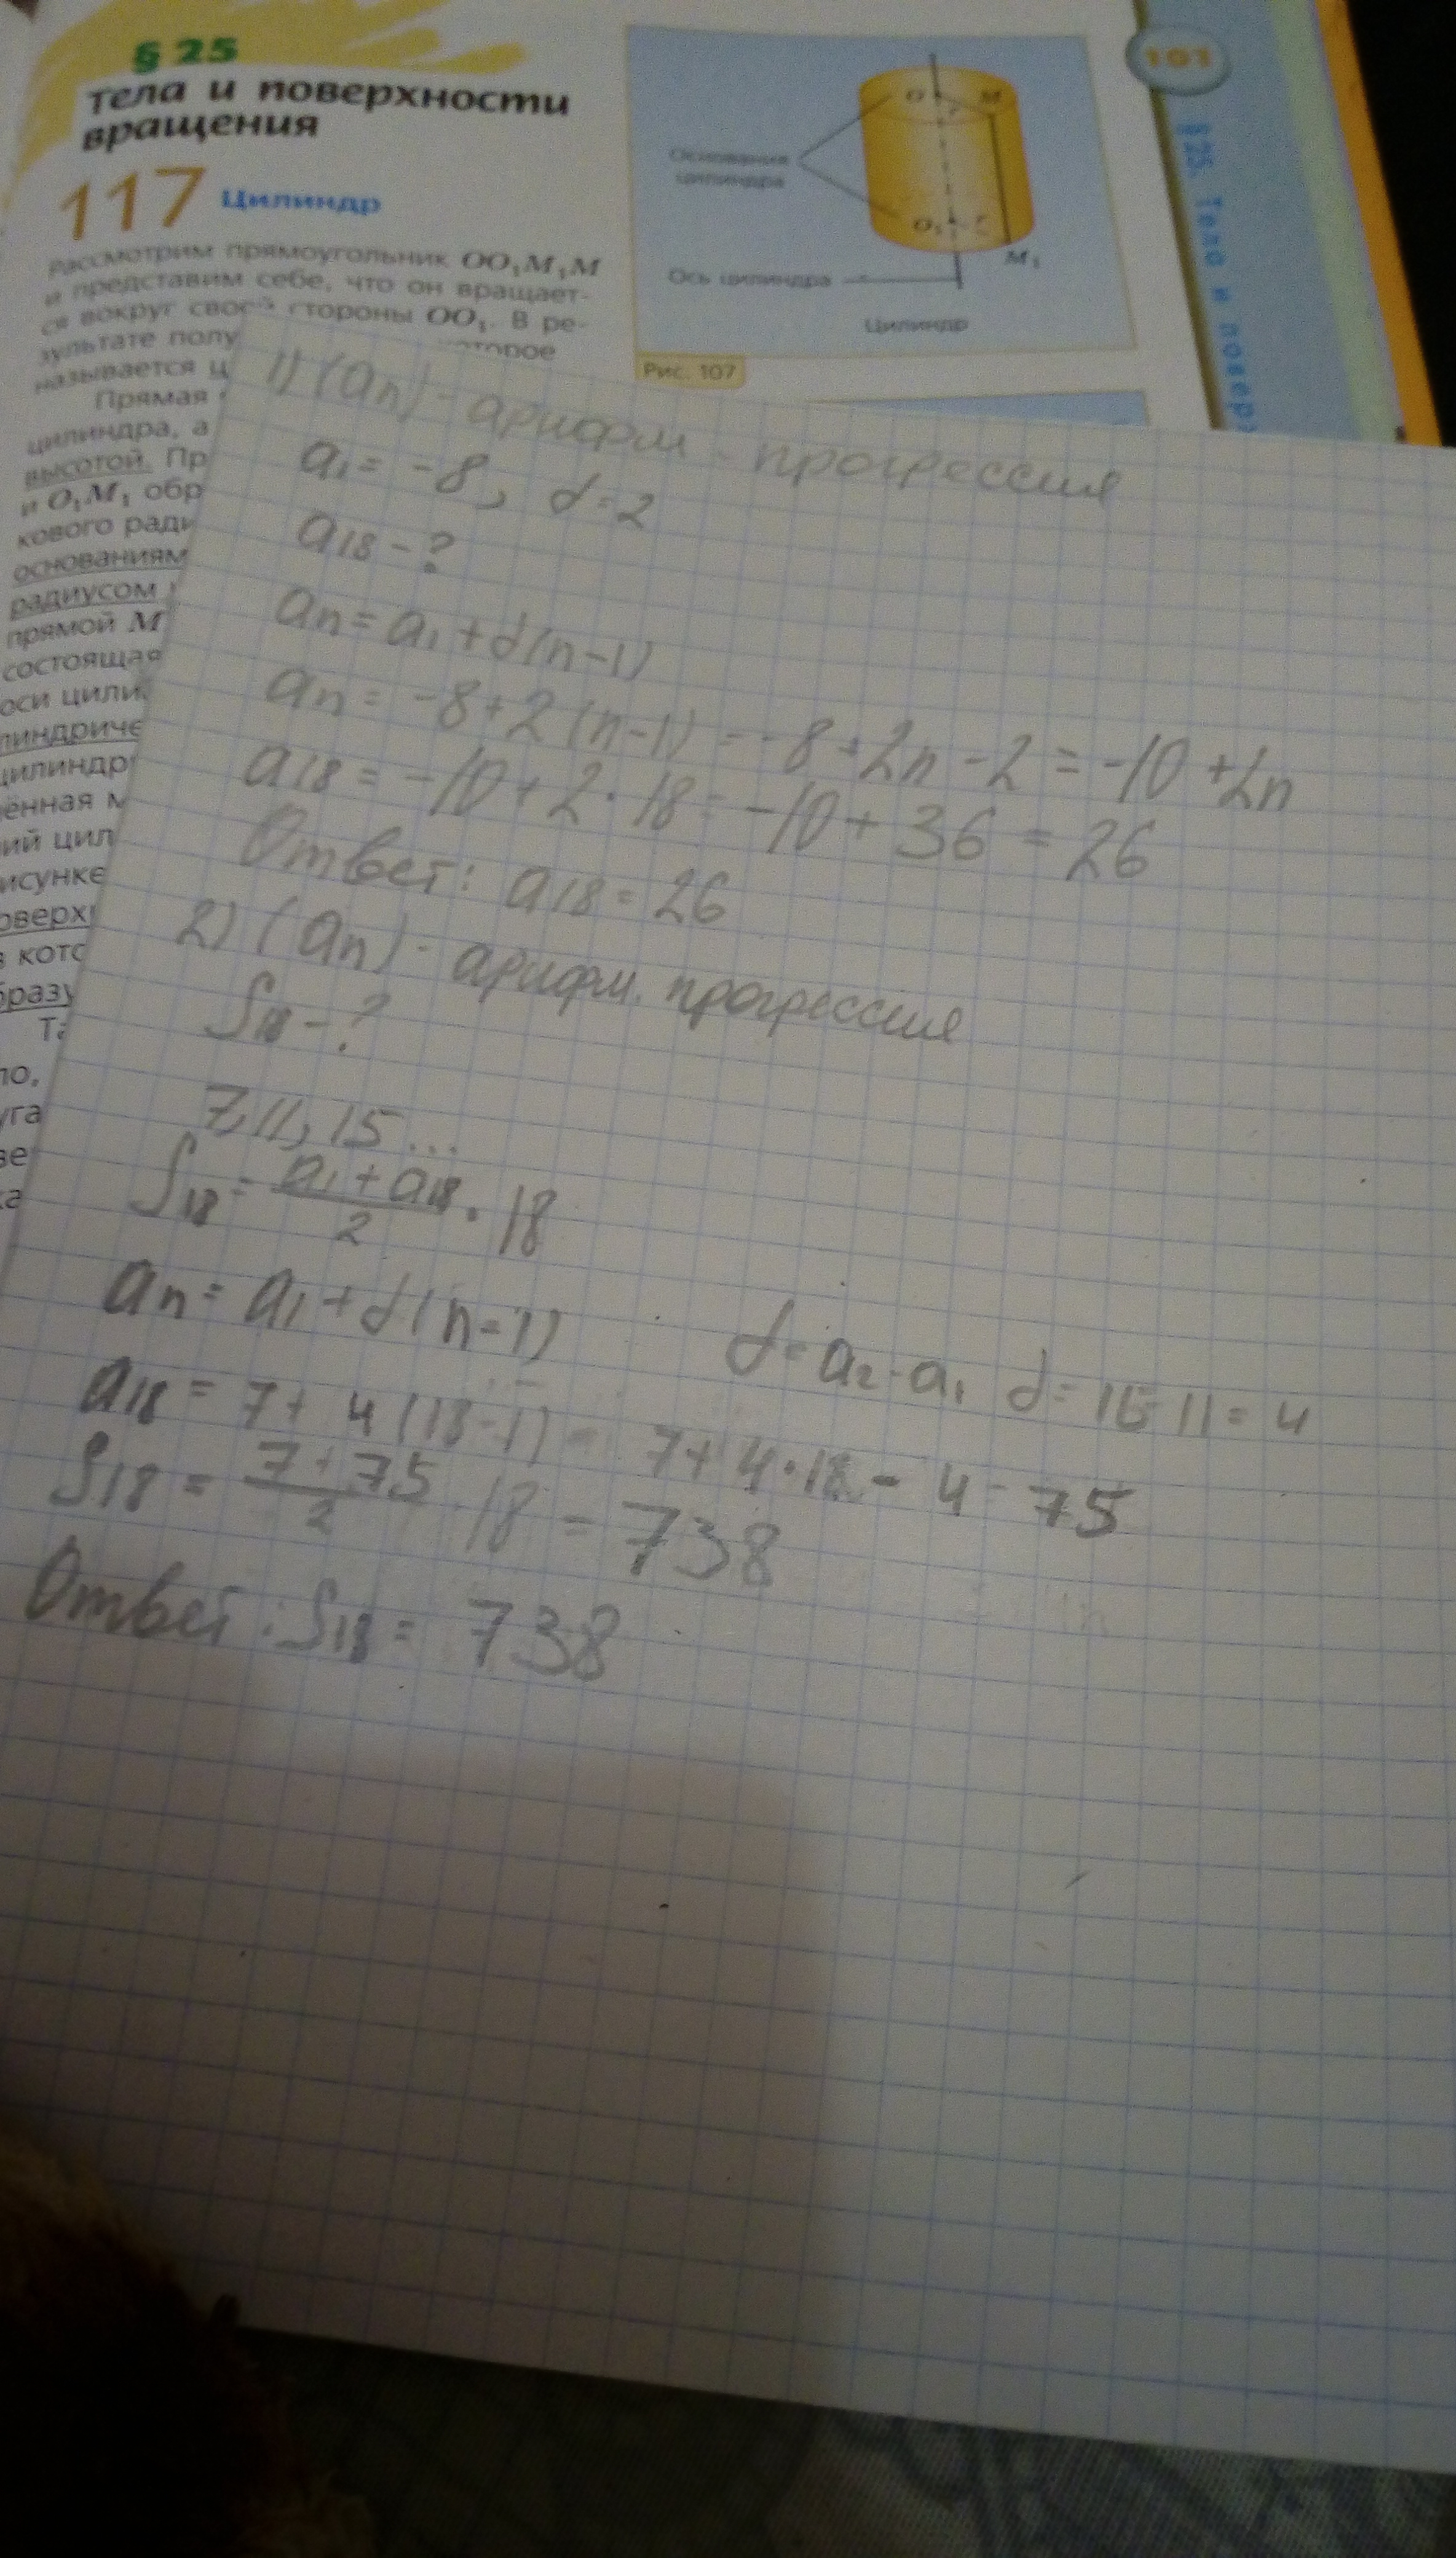 § 25
тела и поверхности
вращения
117 Цилиндр
Рассмотрим прямоугольник OO₁M₁M
и представим себе, что он вращает-
ся вокруг своей стороны OO₁. В ре-
зультате полу которое
называется ц
Прямая
цилиндра, а
высотой. Пр
и O₁M₁ обр
кового ради
основаниям
радиусом
прямой M
состоящая
оси цили
линдриче
цилиндр
ённая м
ий цил
исунке
оверх
в кото
образу
Та
ло,
уга
ве
ка
O M
r
Основания
цилиндра
O₁ r
M₁
Ось цилиндра
Цилиндр
Рис. 107
103
§ 25. Тела и повер
1) (an) - арифм. прогрессия
a₁ = -8, d=2
a18 - ?
an = a₁ + d(n-1)
an = -8+2(n-1) = -8+2n-2 = -10+2n
a18 = -10+2·18 = -10+36 = 26
Ответ: a18 = 26
2) (an) - арифм. прогрессия
S18 - ?
7, 11, 15...
S18 = (a₁+a18)/2 · 18
an = a₁ + d(n-1) d = a₂-a₁ d = 15-11 = 4
a18 = 7+ 4(18-1) = 7+4·18-4=75
S18 = (7+75)/2 · 18 = 738
Ответ: S18 = 738